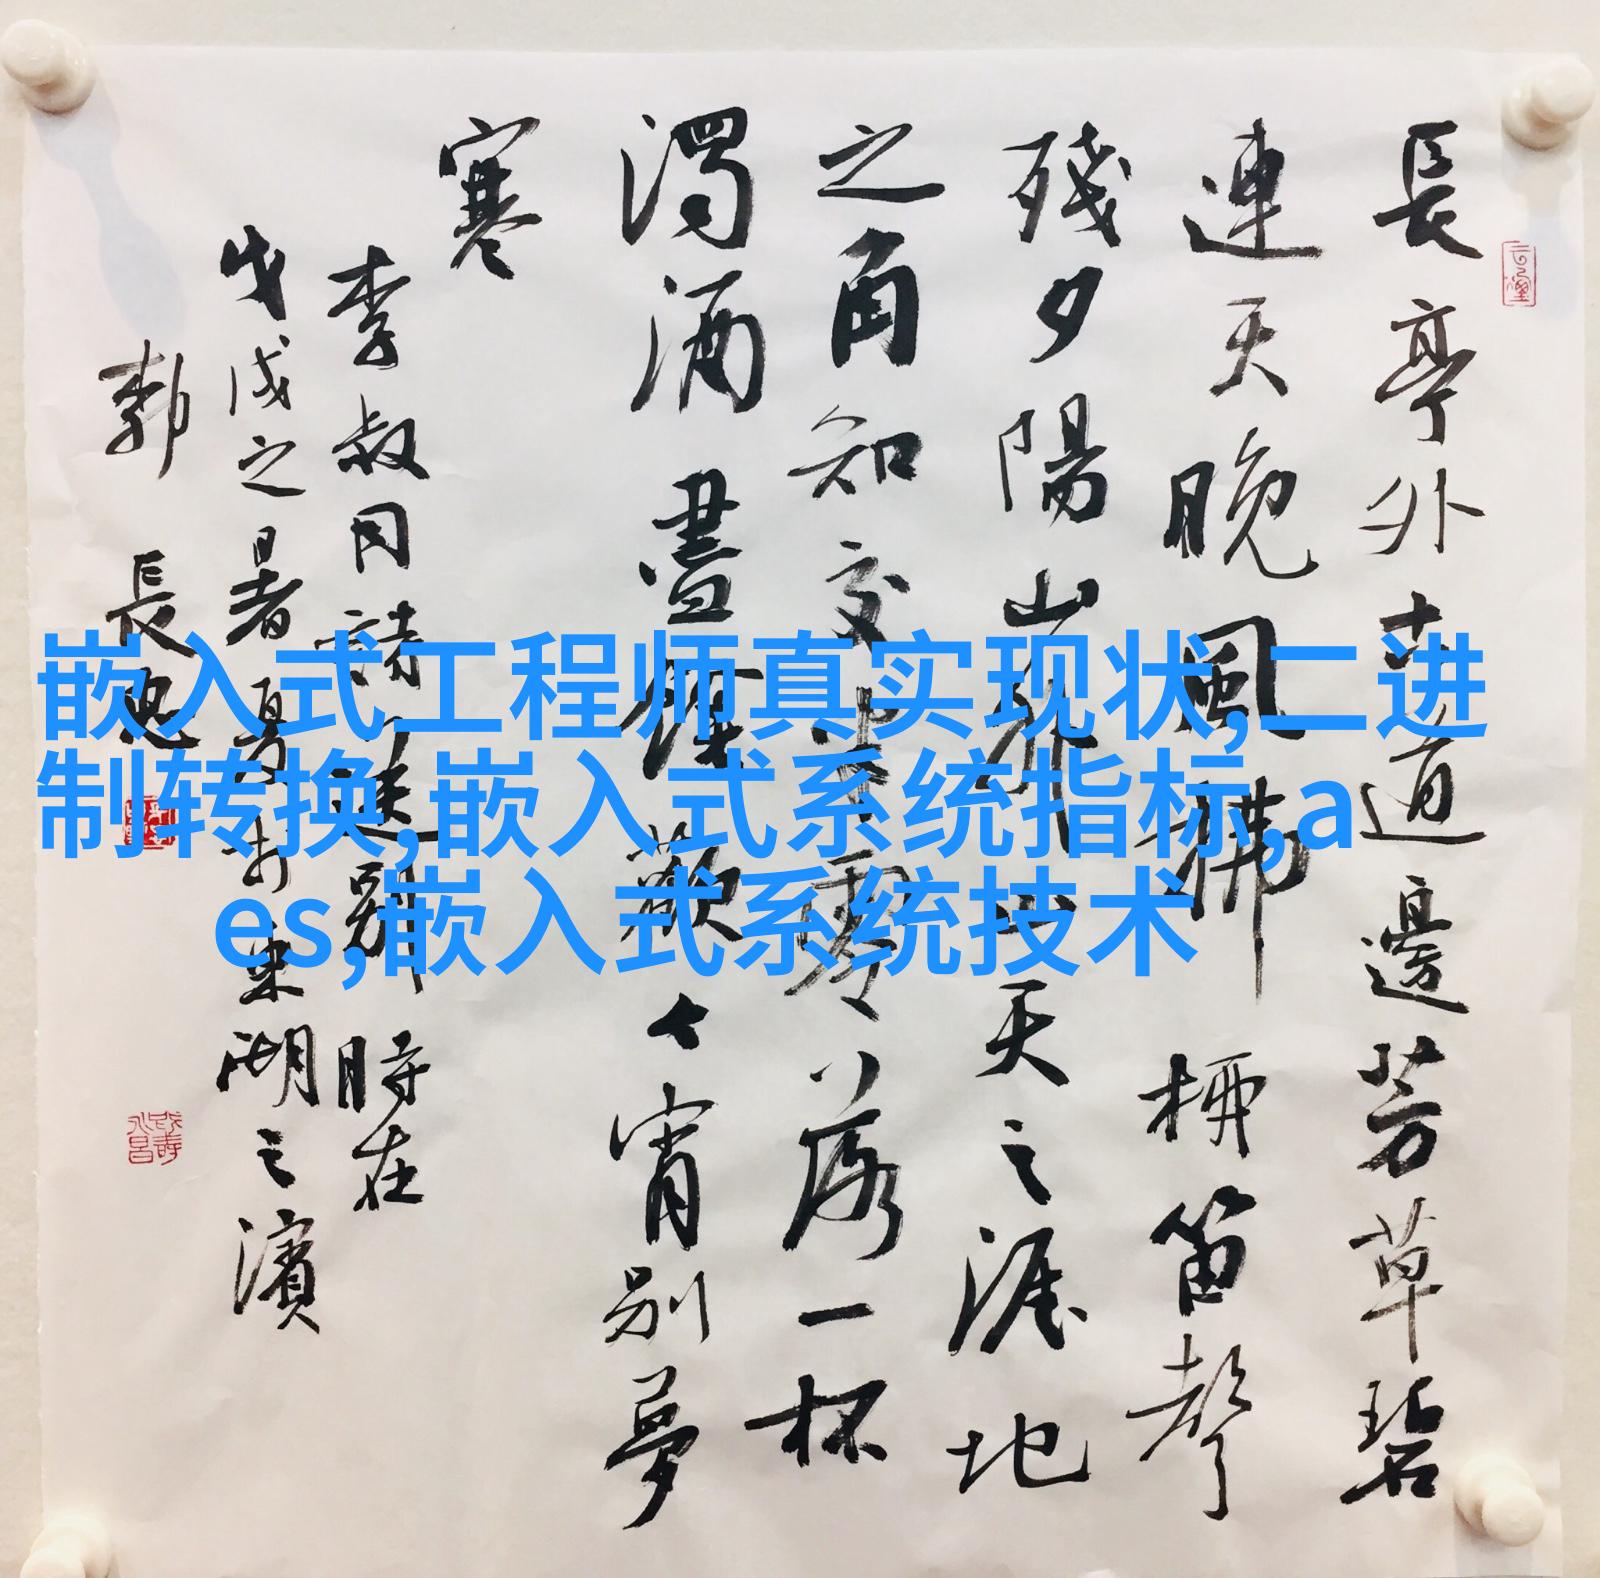 長亭外古道邊芳草碧
連天晚風拂柳笛聲
殘夕陽山外山天之涯地
之角知交半零落一杯
濁酒盡餘歡今宵別夢
寒
李叔同詩送別時在
戊戌之暑夏於東湖之濱
長
嵌入式工程师真实现状,二进
制转换,嵌入式系统指标,a
es,嵌入式系统技术